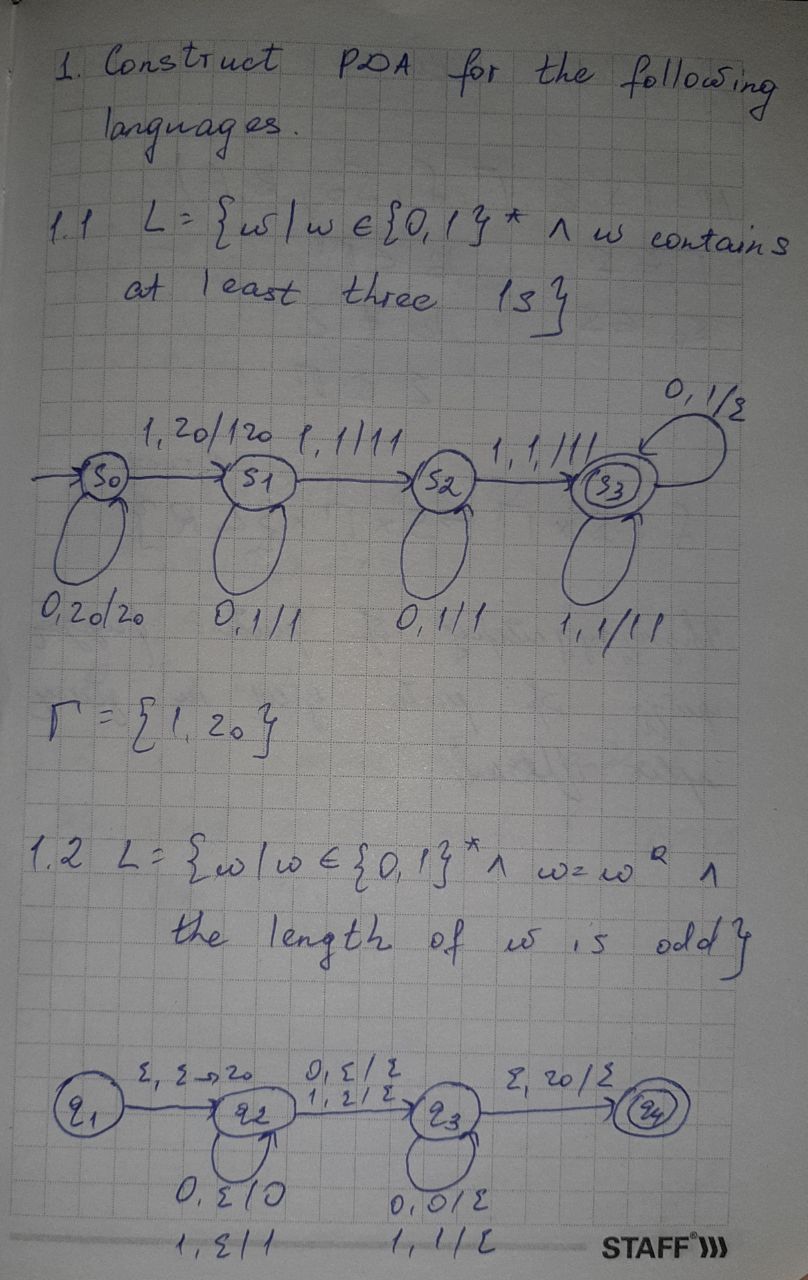 1. Construct PDA for the following
languages.
1.1 L = {w | w ∈ {0,1}* ∧ w contains
at least three 1s}
0, 1/ε
1, z0/1z0 1, 1/11 1, 1, /11
S0 S1 S2 S3
0, z0/z0 0, 1/1 0, 1/1 1, 1/11
Γ = {1, z0}
1.2 L = {w | w ∈ {0,1}* ∧ w = w^R ∧
the length of w is odd}
ε, ε→z0 0, ε/ε ε, z0/ε
1, ε/ε
q1 q2 q3 q4
0, ε/0 0, 0/ε
1, ε/1 1, 1/ε
STAFF®